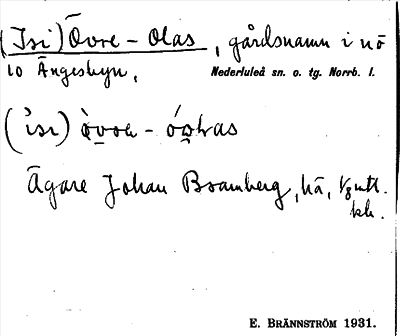 (Isi) Övre - Olas, gårdsnamn i nö
10 Ängesbyn, Nederluleå sn. o. tg. Norrb. l.
Ägare Johan Bramberg, hä, 1/8 mtl.
E. BRÄNNSTRÖM 1931.